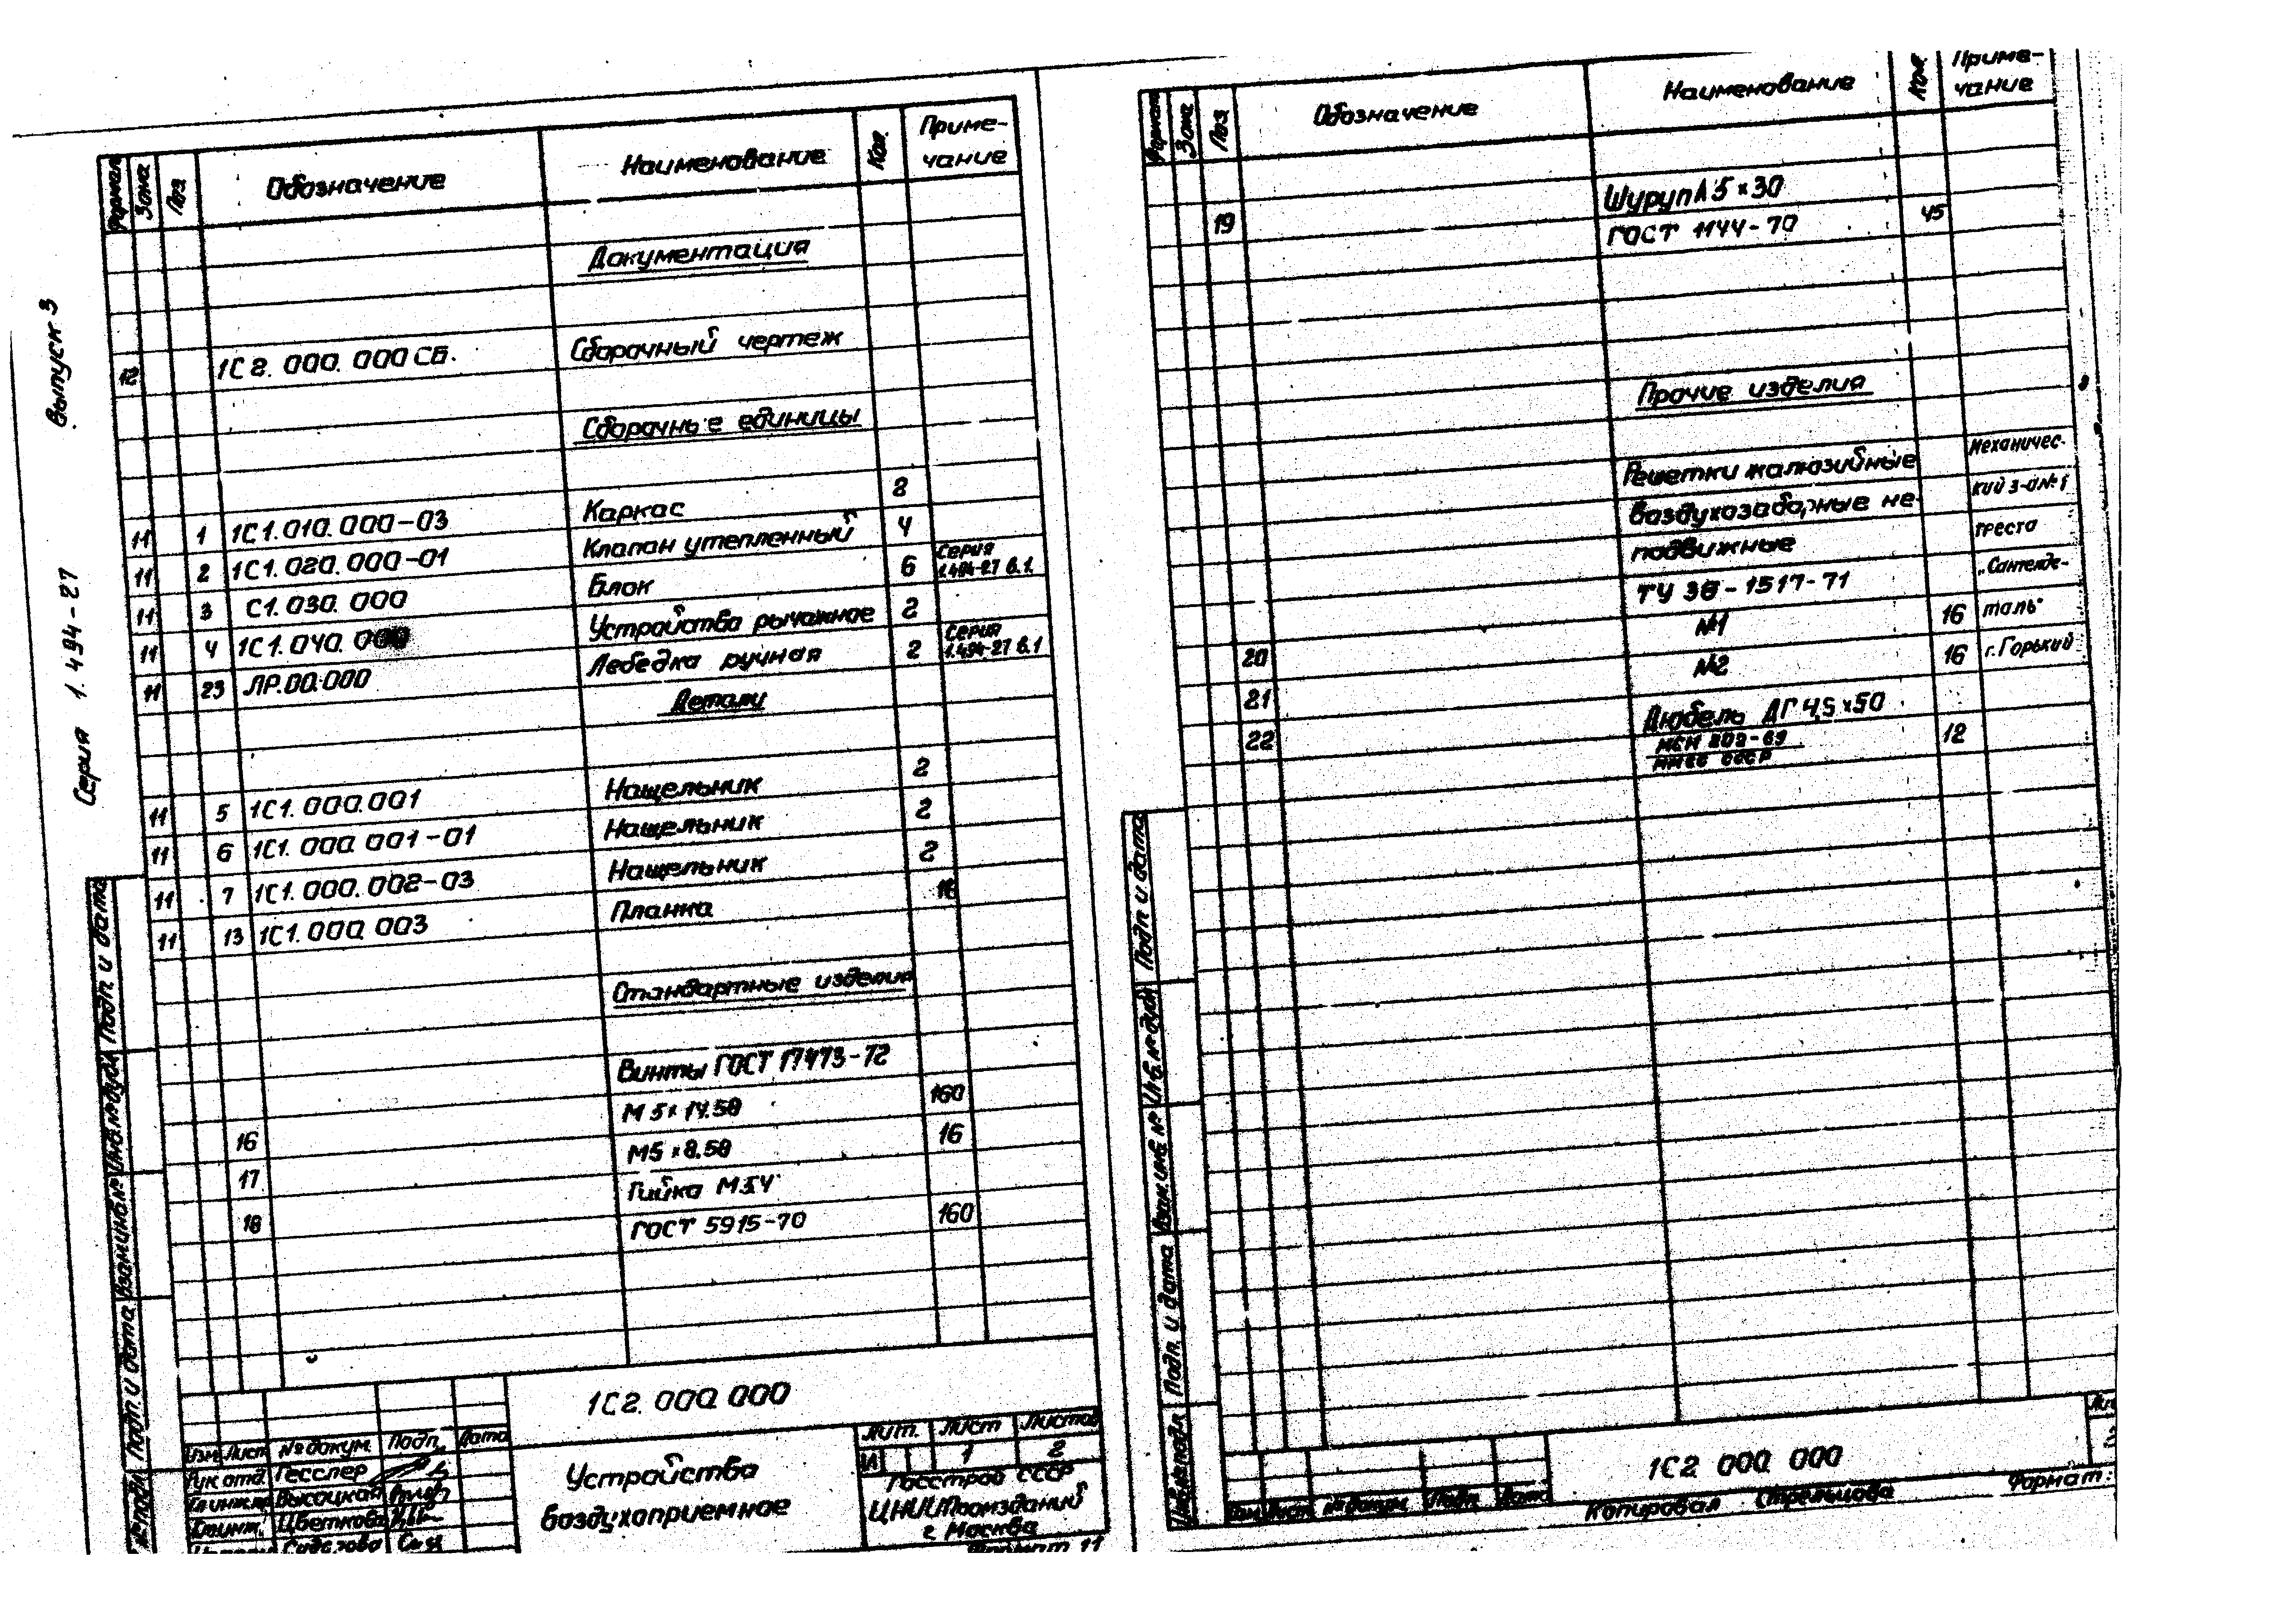 Серия 1.494-27 выпуск 3
Формат Зона Поз. Обозначение Наименование Кол. Приме-
чание
Документация
12 1С2.000.000СБ. Сборочный чертеж
Сборочные единицы
11 1 1С1.010.000-03 Каркас 2
11 2 1С1.020.000-01 Клапан утепленный 4
11 3 С1.030.000 Блок 6 Серия
1.494-27 в.1.
11 4 1С1.040.000 Устройство рычажное 2
11 23 ЛР.00.000 Лебедка ручная 2 Серия
1.494-27 в.1
Детали
11 5 1С1.000.001 Нащельник 2
11 6 1С1.000.001-01 Нащельник 2
11 7 1С1.000.002-03 Нащельник 2
11 13 1С1.000.003 Планка 16
Стандартные изделия
Винты ГОСТ 17473-72
16 М5×14.58 160
17 М5×8.58 16
Гайка М5.4
18 ГОСТ 5915-70 160
1С2.000.000
Изм Лист № докум. Подп. Дата
Рук отд. Гесслер
Гл инж.пр Высоцкая
Гл.инж. Цветкова
Устройство
воздухоприемное
Лит. Лист Листов
И 1 2
Госстрой СССР
ЦНИИПромзданий
г. Москва
Формат 11
Подп. и дата
Инв.№ дубл.
Взам.инв.№
Подп. и дата
№ подл
Формат Зона Поз Обозначение Наименование Кол. Приме-
чание
Шуруп А5×30
19 ГОСТ 1144-70 45
Прочие изделия
Решетки жалюзийные Механичес-
воздухозаборные не- кий з-д №1
подвижные треста
ТУ 36-1517-71 „Сантехде-
20 №1 16 таль"
21 №2 16 г. Горький
Дюбель ДГ 4,5×50
22 МСН 202-69 12
ММСС СССР
Подп и дата
Инв.№ дубл
Взам.инв №
Подп. и дата
Инв.№ подл
Изм Лист № докум. Подп. Дата
1С2 000 000
Копировал Стрельцова Формат: